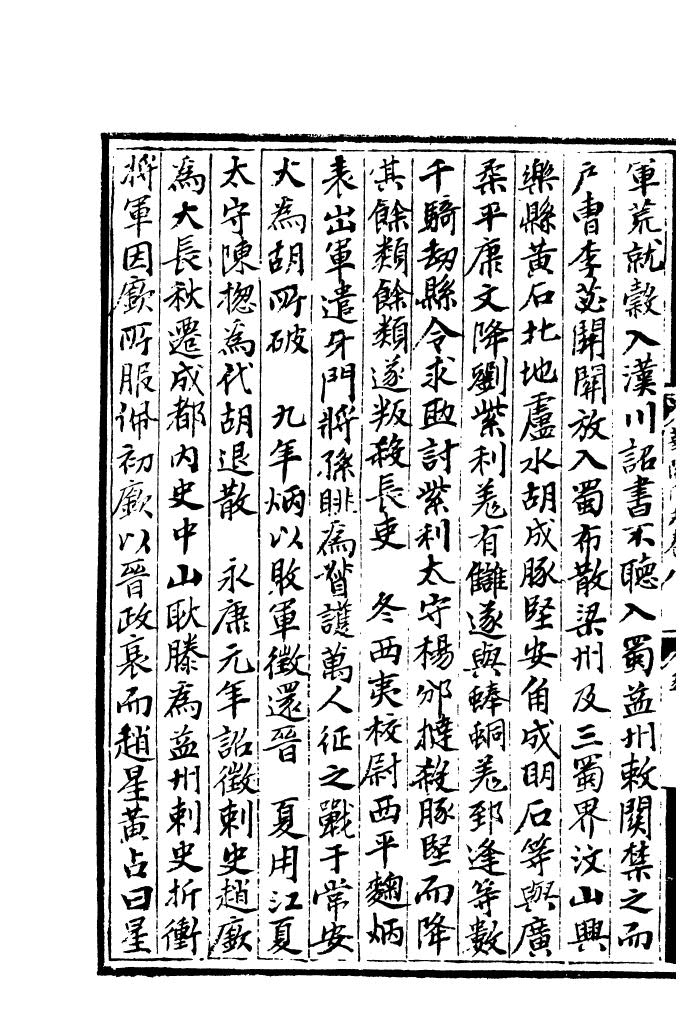 軍荒就穀入漢川詔書不聽入蜀益州敕關禁之而
户曹李苾開關放入蜀布散梁州及三蜀界汶山興
樂縣黃石北地盧水胡成豚堅安角成明石等與廣
柔平康文降劉紫利羗有讎遂與蜯蜪羗郅逢等數
千騎刼縣令求助討紫利太守楊邠撻殺豚堅而降
其餘類餘類遂叛殺長吏　冬西夷校尉西平麴炳
表出軍遣牙門將孫眺為督護萬人征之戰于常安
大為胡所破　九年炳以敗軍徵還晉　夏用江夏
太守陳揔為代胡退散　永康元年詔徵刺史趙廞
為大長秋遷成都内史中山耿滕為益州刺史折衝
將軍因廞所服佩初廞以晉政衰而趙星黃占曰星